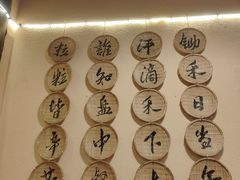 锄禾日当
汗滴禾下
誰知盘中
粒粒皆辛